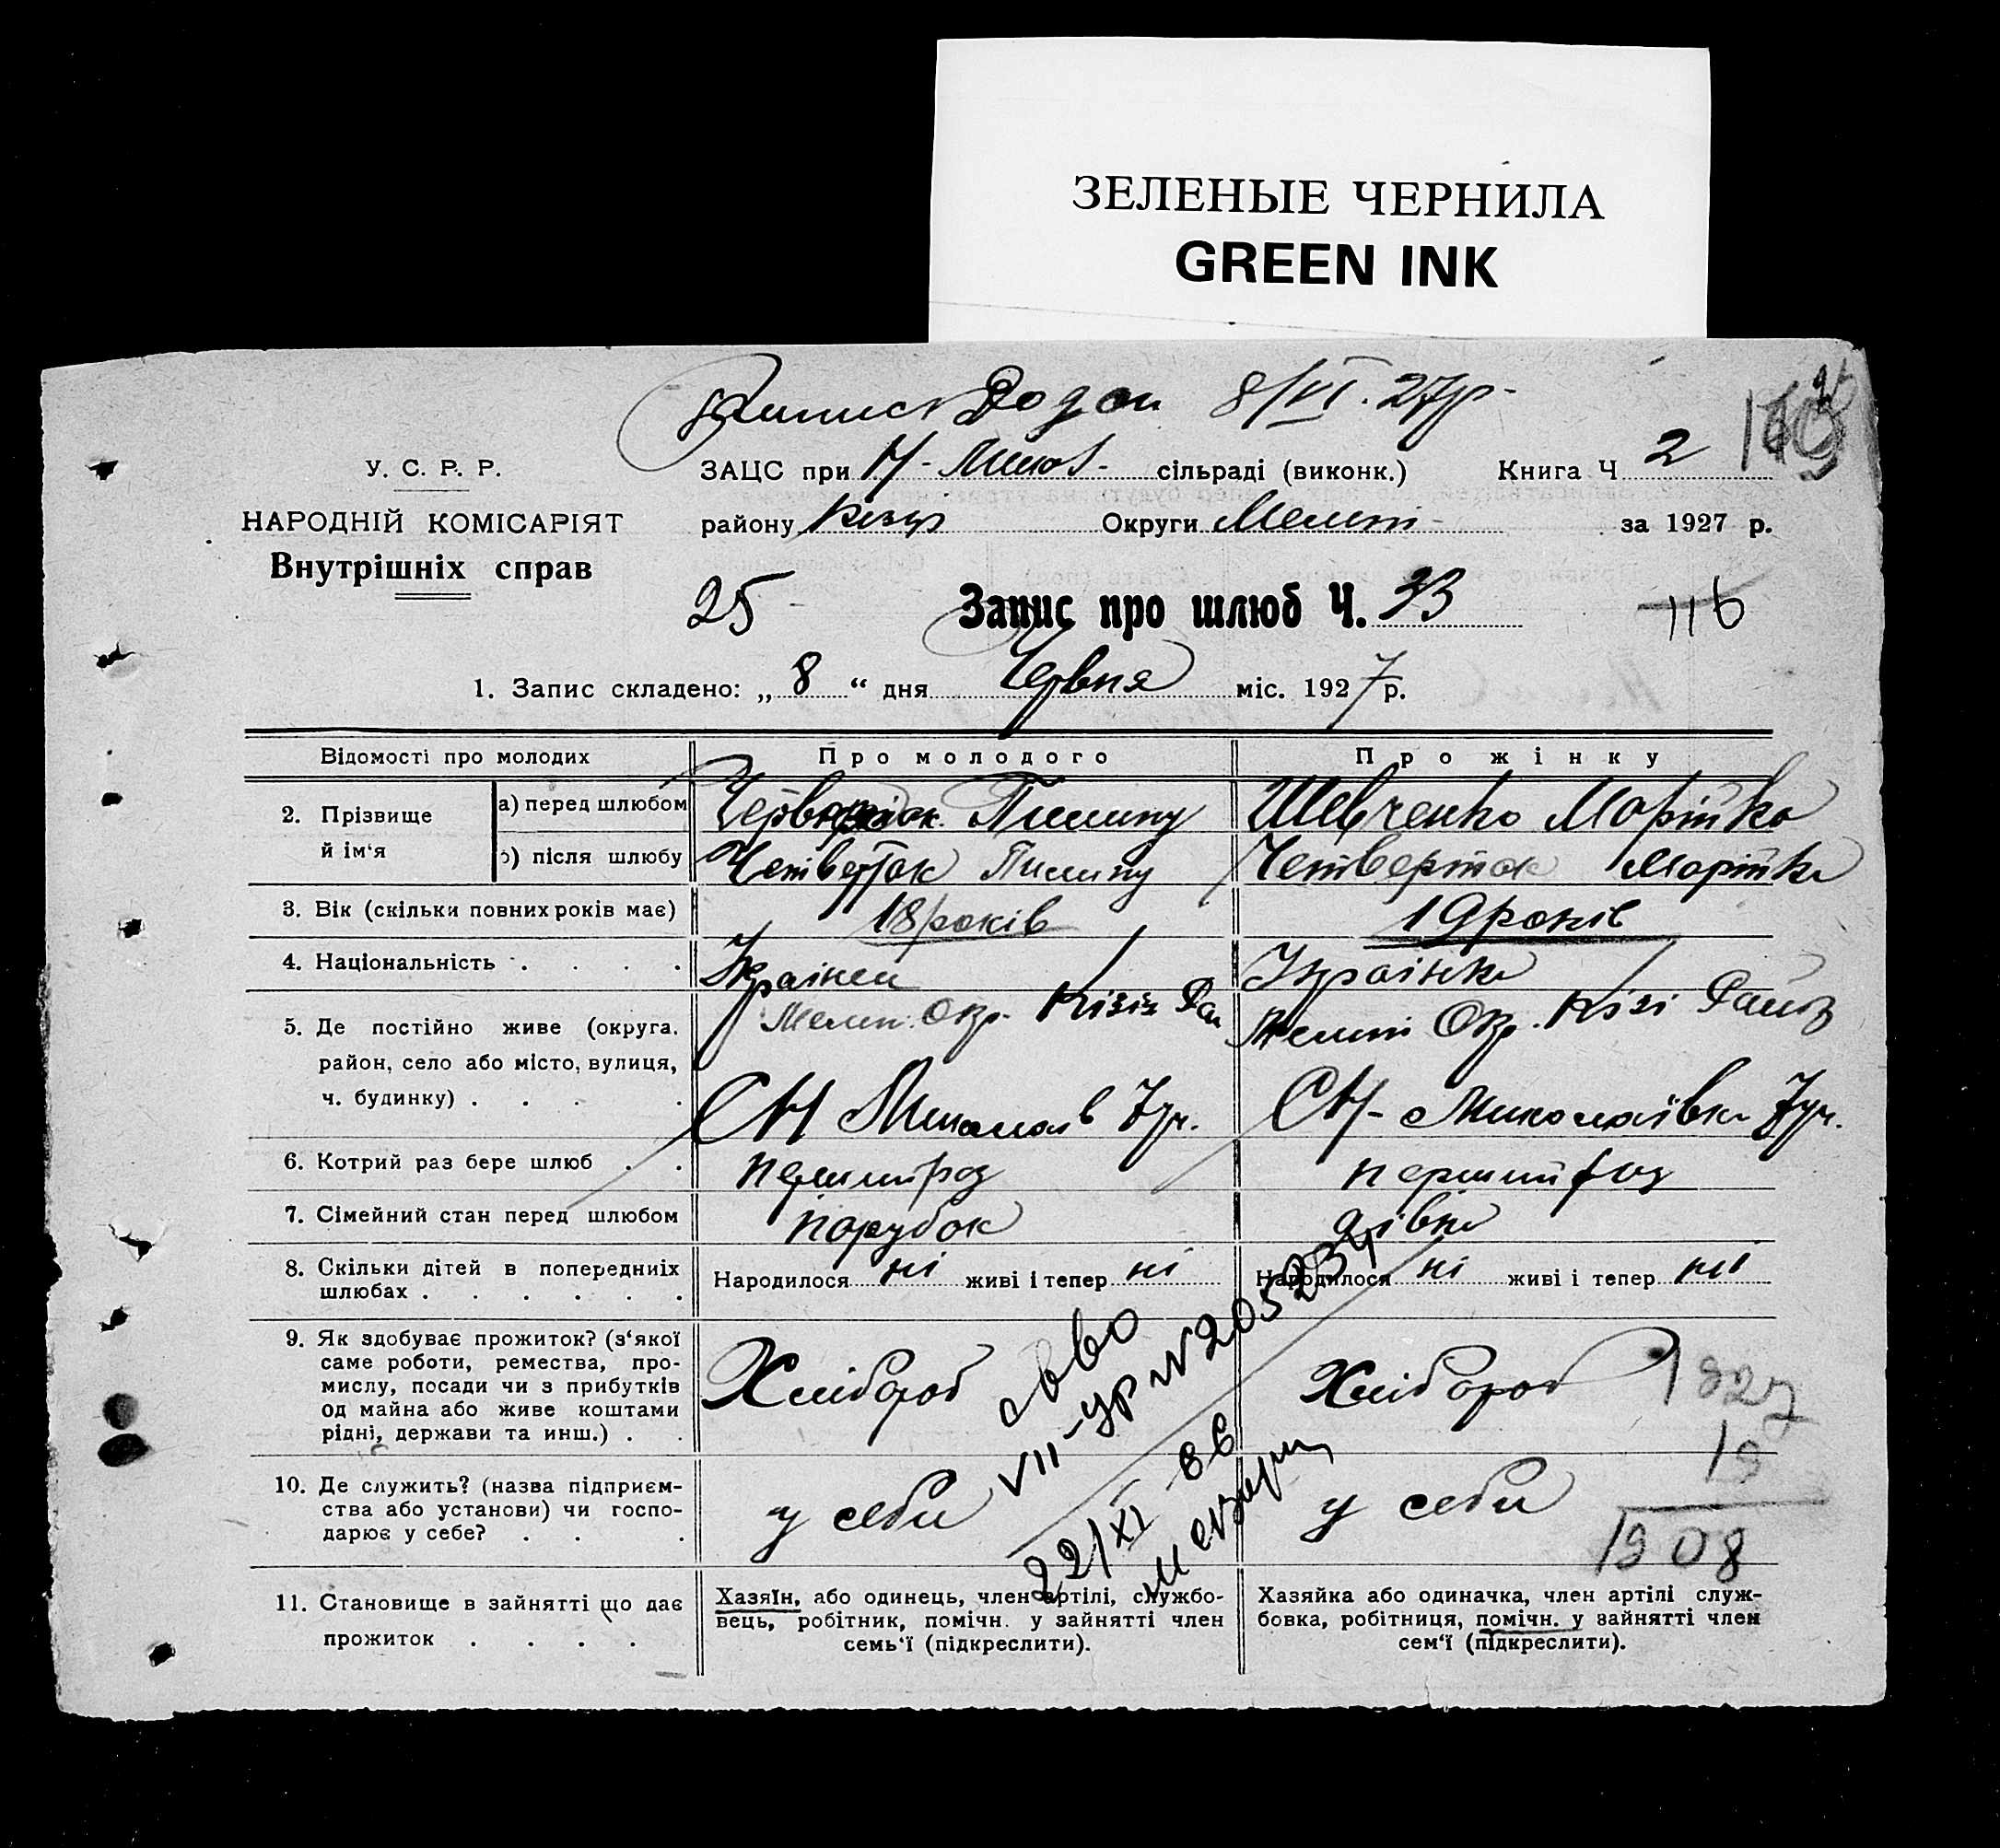 ЗЕЛЕНЫЕ ЧЕРНИЛА
GREEN INK
8/VI. 27р-
У. С. Р. Р.
НАРОДНІЙ КОМІСАРІЯТ
Внутрішніх справ
ЗАЦС при Н- Микол- сільраді (виконк.) Книга Ч 2
району Кізір Округи Меліт- за 1927 р.
25 Запис про шлюб Ч. 33 116
1. Запис складено: „ 8 “ дня Червня міс. 1927 р.
Відомості про молодих Про молодого Про жінку
2. Прізвище й ім‘я
а) перед шлюбом Пилипу Шевченко Марійка
б) після шлюбу Четверток Пилипу Четверток Марійка
3. Вік (скільки повних років має) 18 років 19 років
4. Національність . . . . Украінец Украінка
5. Де постійно живе (округа, район, село або місто, вулиця, ч. будинку) . . . .
Меліт. Окр. Кізіз Рай
СН Миколаів
Меліт Окр. Кізі Району
СН- Миколаівка
6. Котрий раз бере шлюб . . перший раз перший раз
7. Сімейний стан перед шлюбом парубок дівка
8. Скільки дітей в попередниіх шлюбах . . . . . .
Народилося ні живі і тепер ні Народилося ні живі і тепер ні
9. Як здобуває прожиток? (з‘якої
саме роботи, ремества, про-
мислу, посади чи з прибутків
од майна або живе коштами
рідні, держави та инш.) . .
Хлібороб Хлібороб
VII-УР №205234
22/XI
1927
19
1908
10. Де служить? (назва підприєм-
ства або установи) чи госпо-
дарює у себе? . . .
у себи у себи
11. Становище в зайнятті що дає
прожиток . . . .
Хазяїн, або одинець, член артілі, службо-
вець, робітник, помічн. у зайнятті член
семь‘ї (підкреслити).
Хазяйка або одиначка, член артілі служ-
бовка, робітниця, помічн. у зайнятті член
сем‘ї (підкреслити).